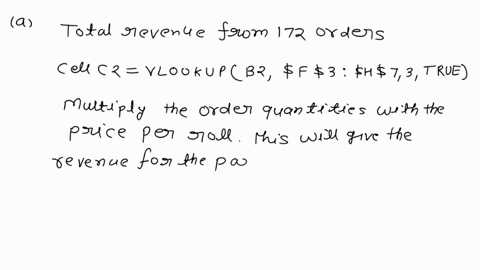 (a) Total revenue from 172 orders
Cell C2 = VLOOKUP(B2, $F$3:$H$7,3, TRUE)
Multiply the order quantities with the
price per roll. This will give the
revenue for the pa